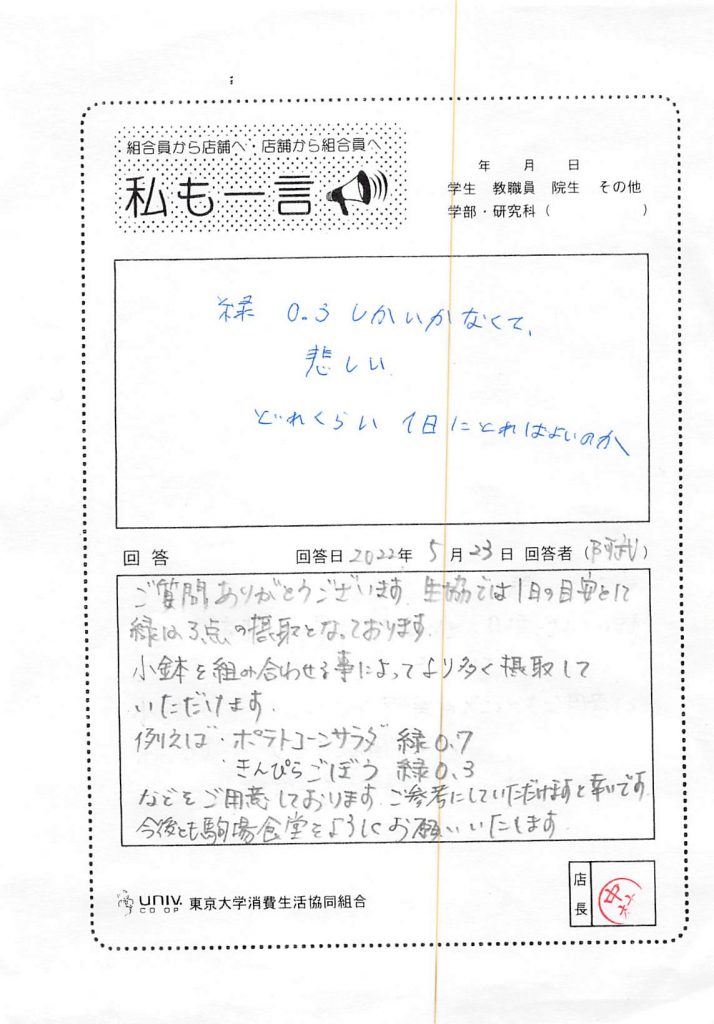 組合員から店舗へ・店舗から組合員へ
私も一言
年 月 日
学生 教職員 院生 その他
学部・研究科( )
緑 0.3 しかいかなくて、
悲しい
どれくらい 1日にとればよいのか
回答 回答日 2022年 5月23日 回答者(阿武)
ご質問ありがとうございます。生協では1日の目安として
緑は3点の摂取となっております。
小鉢を組み合わせる事によってより多く摂取して
いただけます。
例えば・ポテトコーンサラダ 緑0.7
・きんぴらごぼう 緑0.3
などをご用意しております。ご参考にしていただけますと幸いです。
今後とも駒場食堂をよろしくお願いいたします。
UNIV. CO-OP 東京大学消費生活協同組合
店長